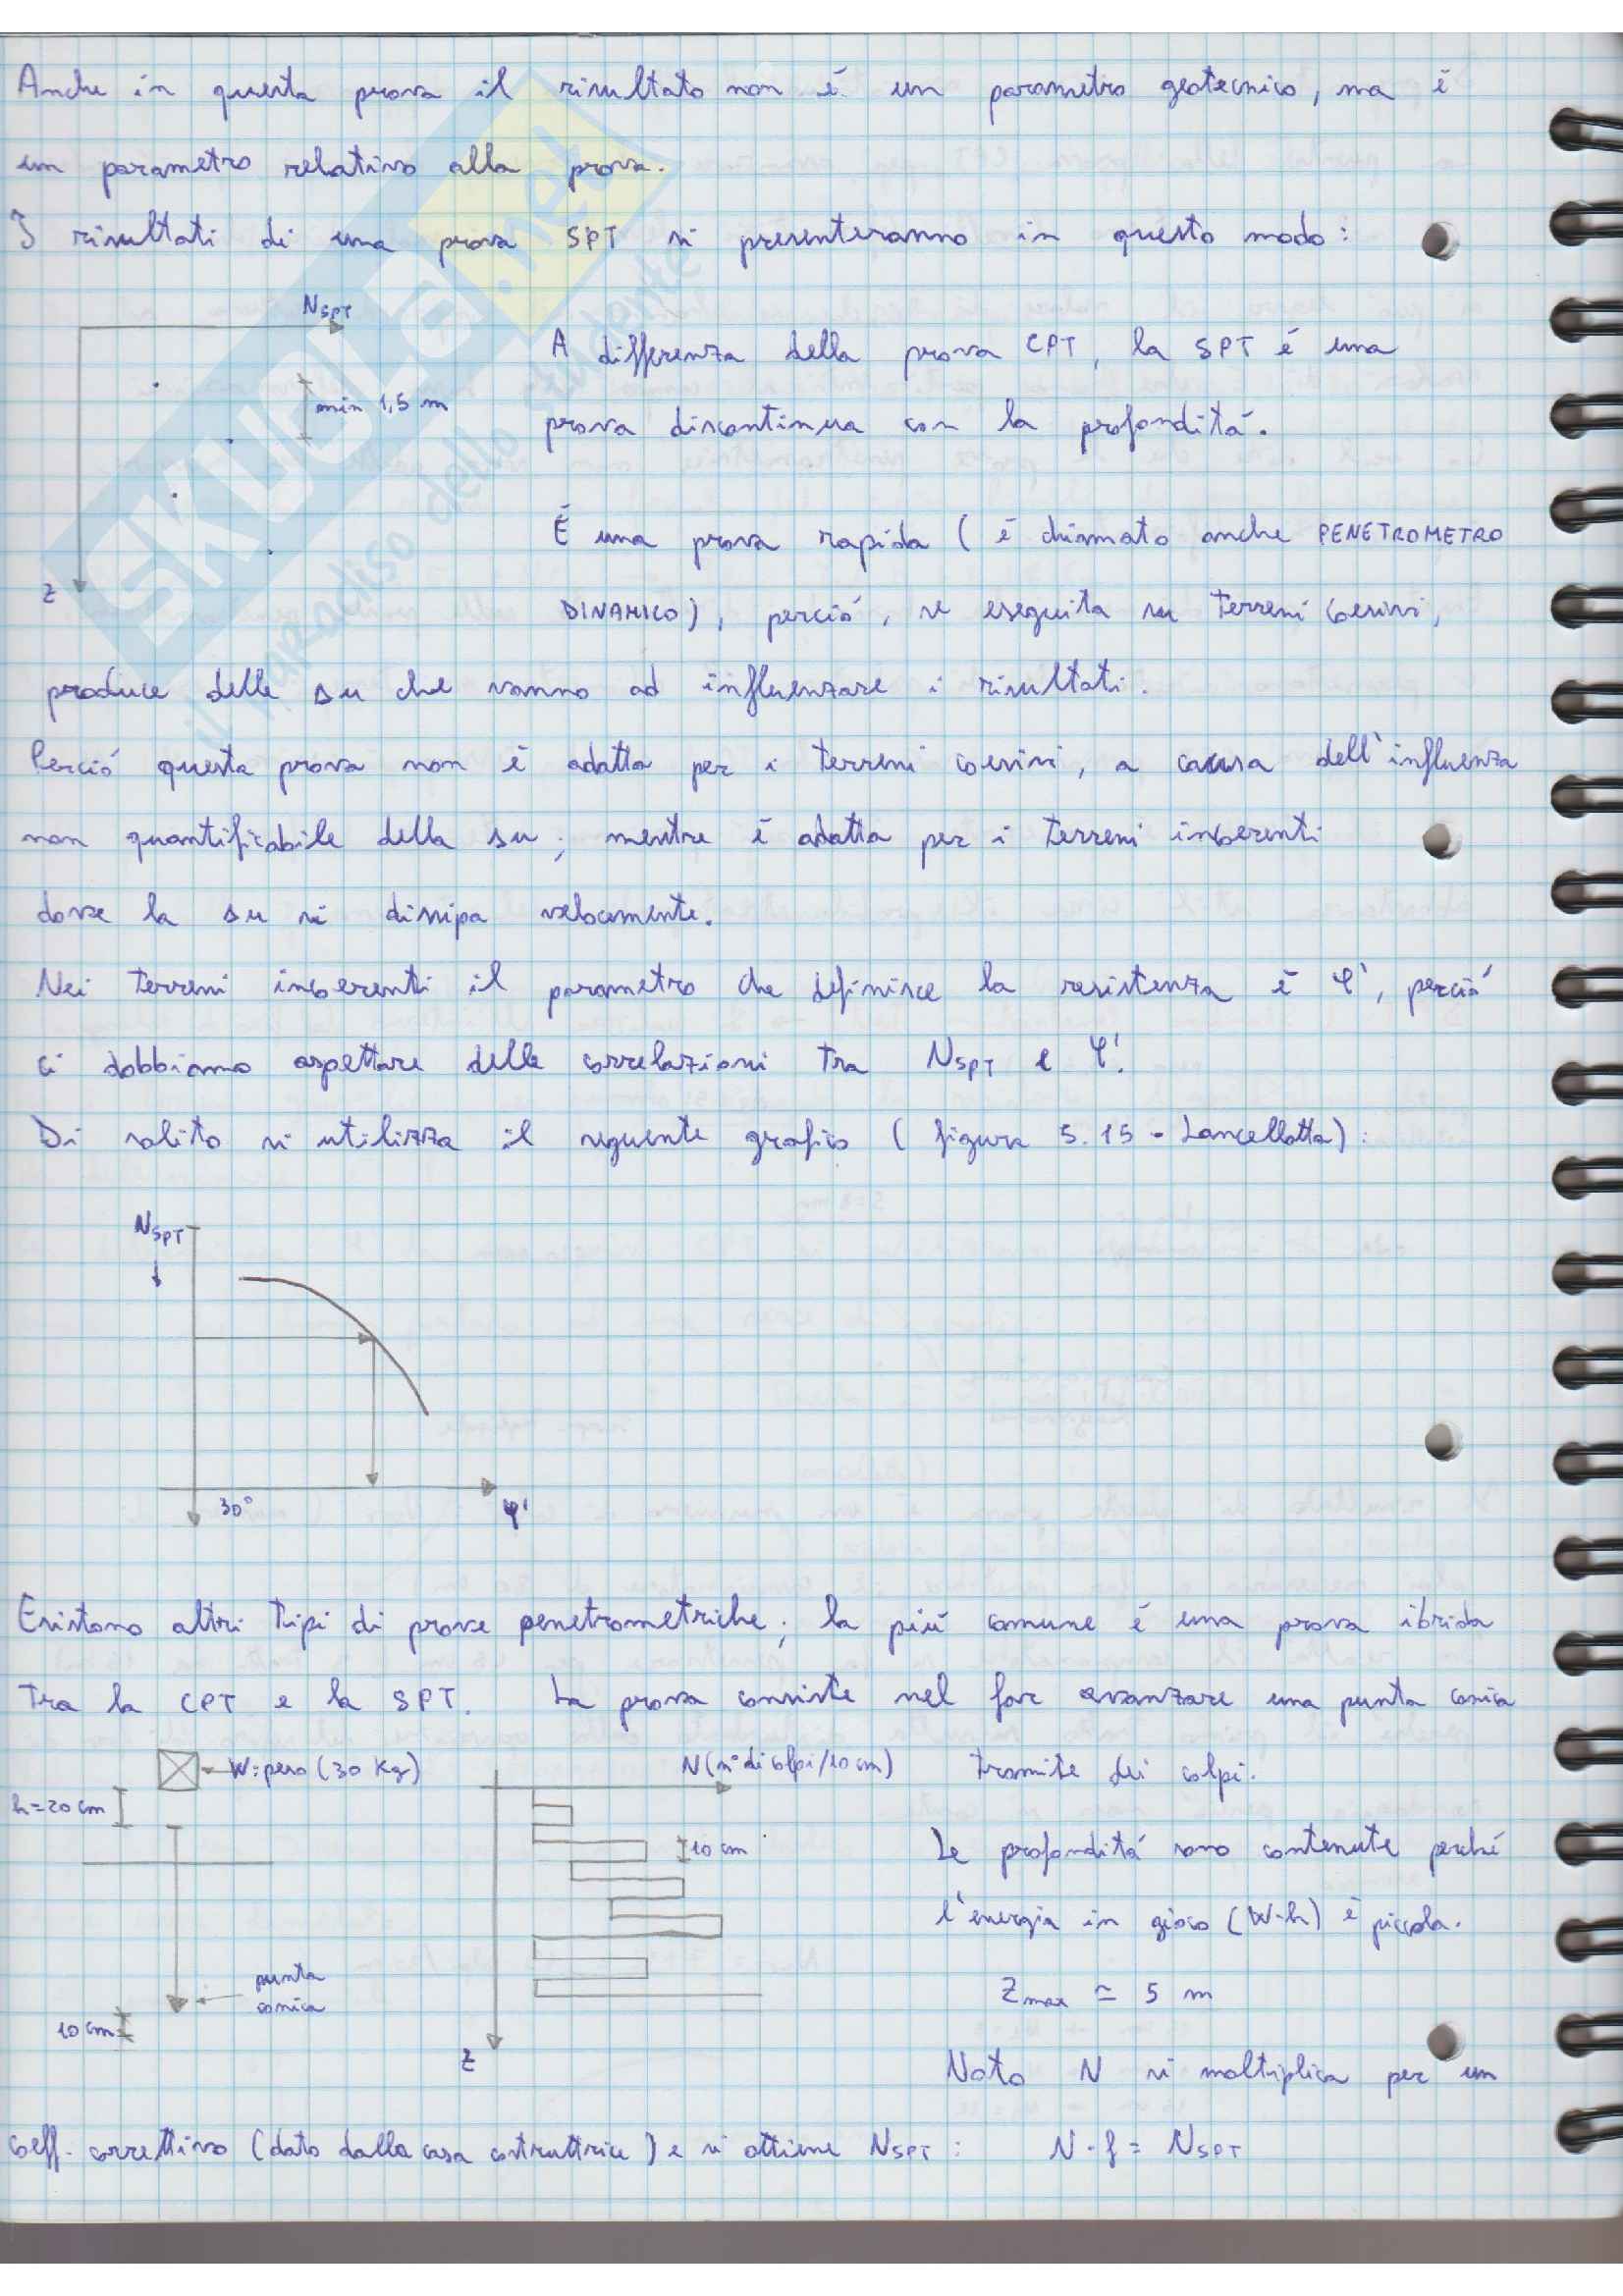 Anche in questa prova il risultato non é un parametro geotecnico, ma é
un parametro relativo alla prova.
I risultati di una prova SPT si presenteranno in questo modo:
NSPT
min 1,5 m
z
A differenza della prova CPT, la SPT é una
prova discontinua con la profonditá.
É una prova rapida (é chiamato anche PENETROMETRO
DINAMICO), perció, se eseguita su terreni coesivi,
produce delle Δu che vanno ad influenzare i risultati.
Perció questa prova non é adatta per i terreni coesivi, a causa dell'influenza
non quantificabile della Δu; mentre é adatta per i terreni incoerenti
dove la Δu si dissipa velocemente.
Nei terreni incoerenti il parametro che definisce la resistenza é φ', perció
ci dobbiamo aspettare delle correlazioni tra NSPT e φ'.
Di solito si utilizza il seguente grafico (figura 5.15 - Lancellotta):
NSPT
↓
30°
φ'
Esistono altri tipi di prove penetrometriche; la piú comune é una prova ibrida
tra la CPT e la SPT. La prova consiste nel far avanzare una punta conica
tramite dei colpi.
W=peso (30 Kg)
h=20 cm
punta
conica
10 cm
N (n° di colpi/10 cm)
10 cm
z
Le profonditá sono contenute perché
l'energia in gioco (W·h) é piccola.
Zmax ≃ 5 m
Noto N si moltiplica per un
coeff. correttivo (dato dalla casa costruttrice) e si ottiene NSPT: N·f = NSPT
SKUOLA.net
il paradiso dello studente